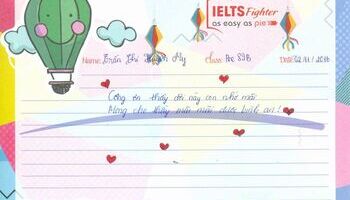 IELTS Fighter
as easy as pie
Name: Trần Thị Huỳnh My Class: Pre S9B Date: 02/11/
Công ơn thầy đời này con nhớ mãi
Mong cho thầy mãi mãi được bình an!